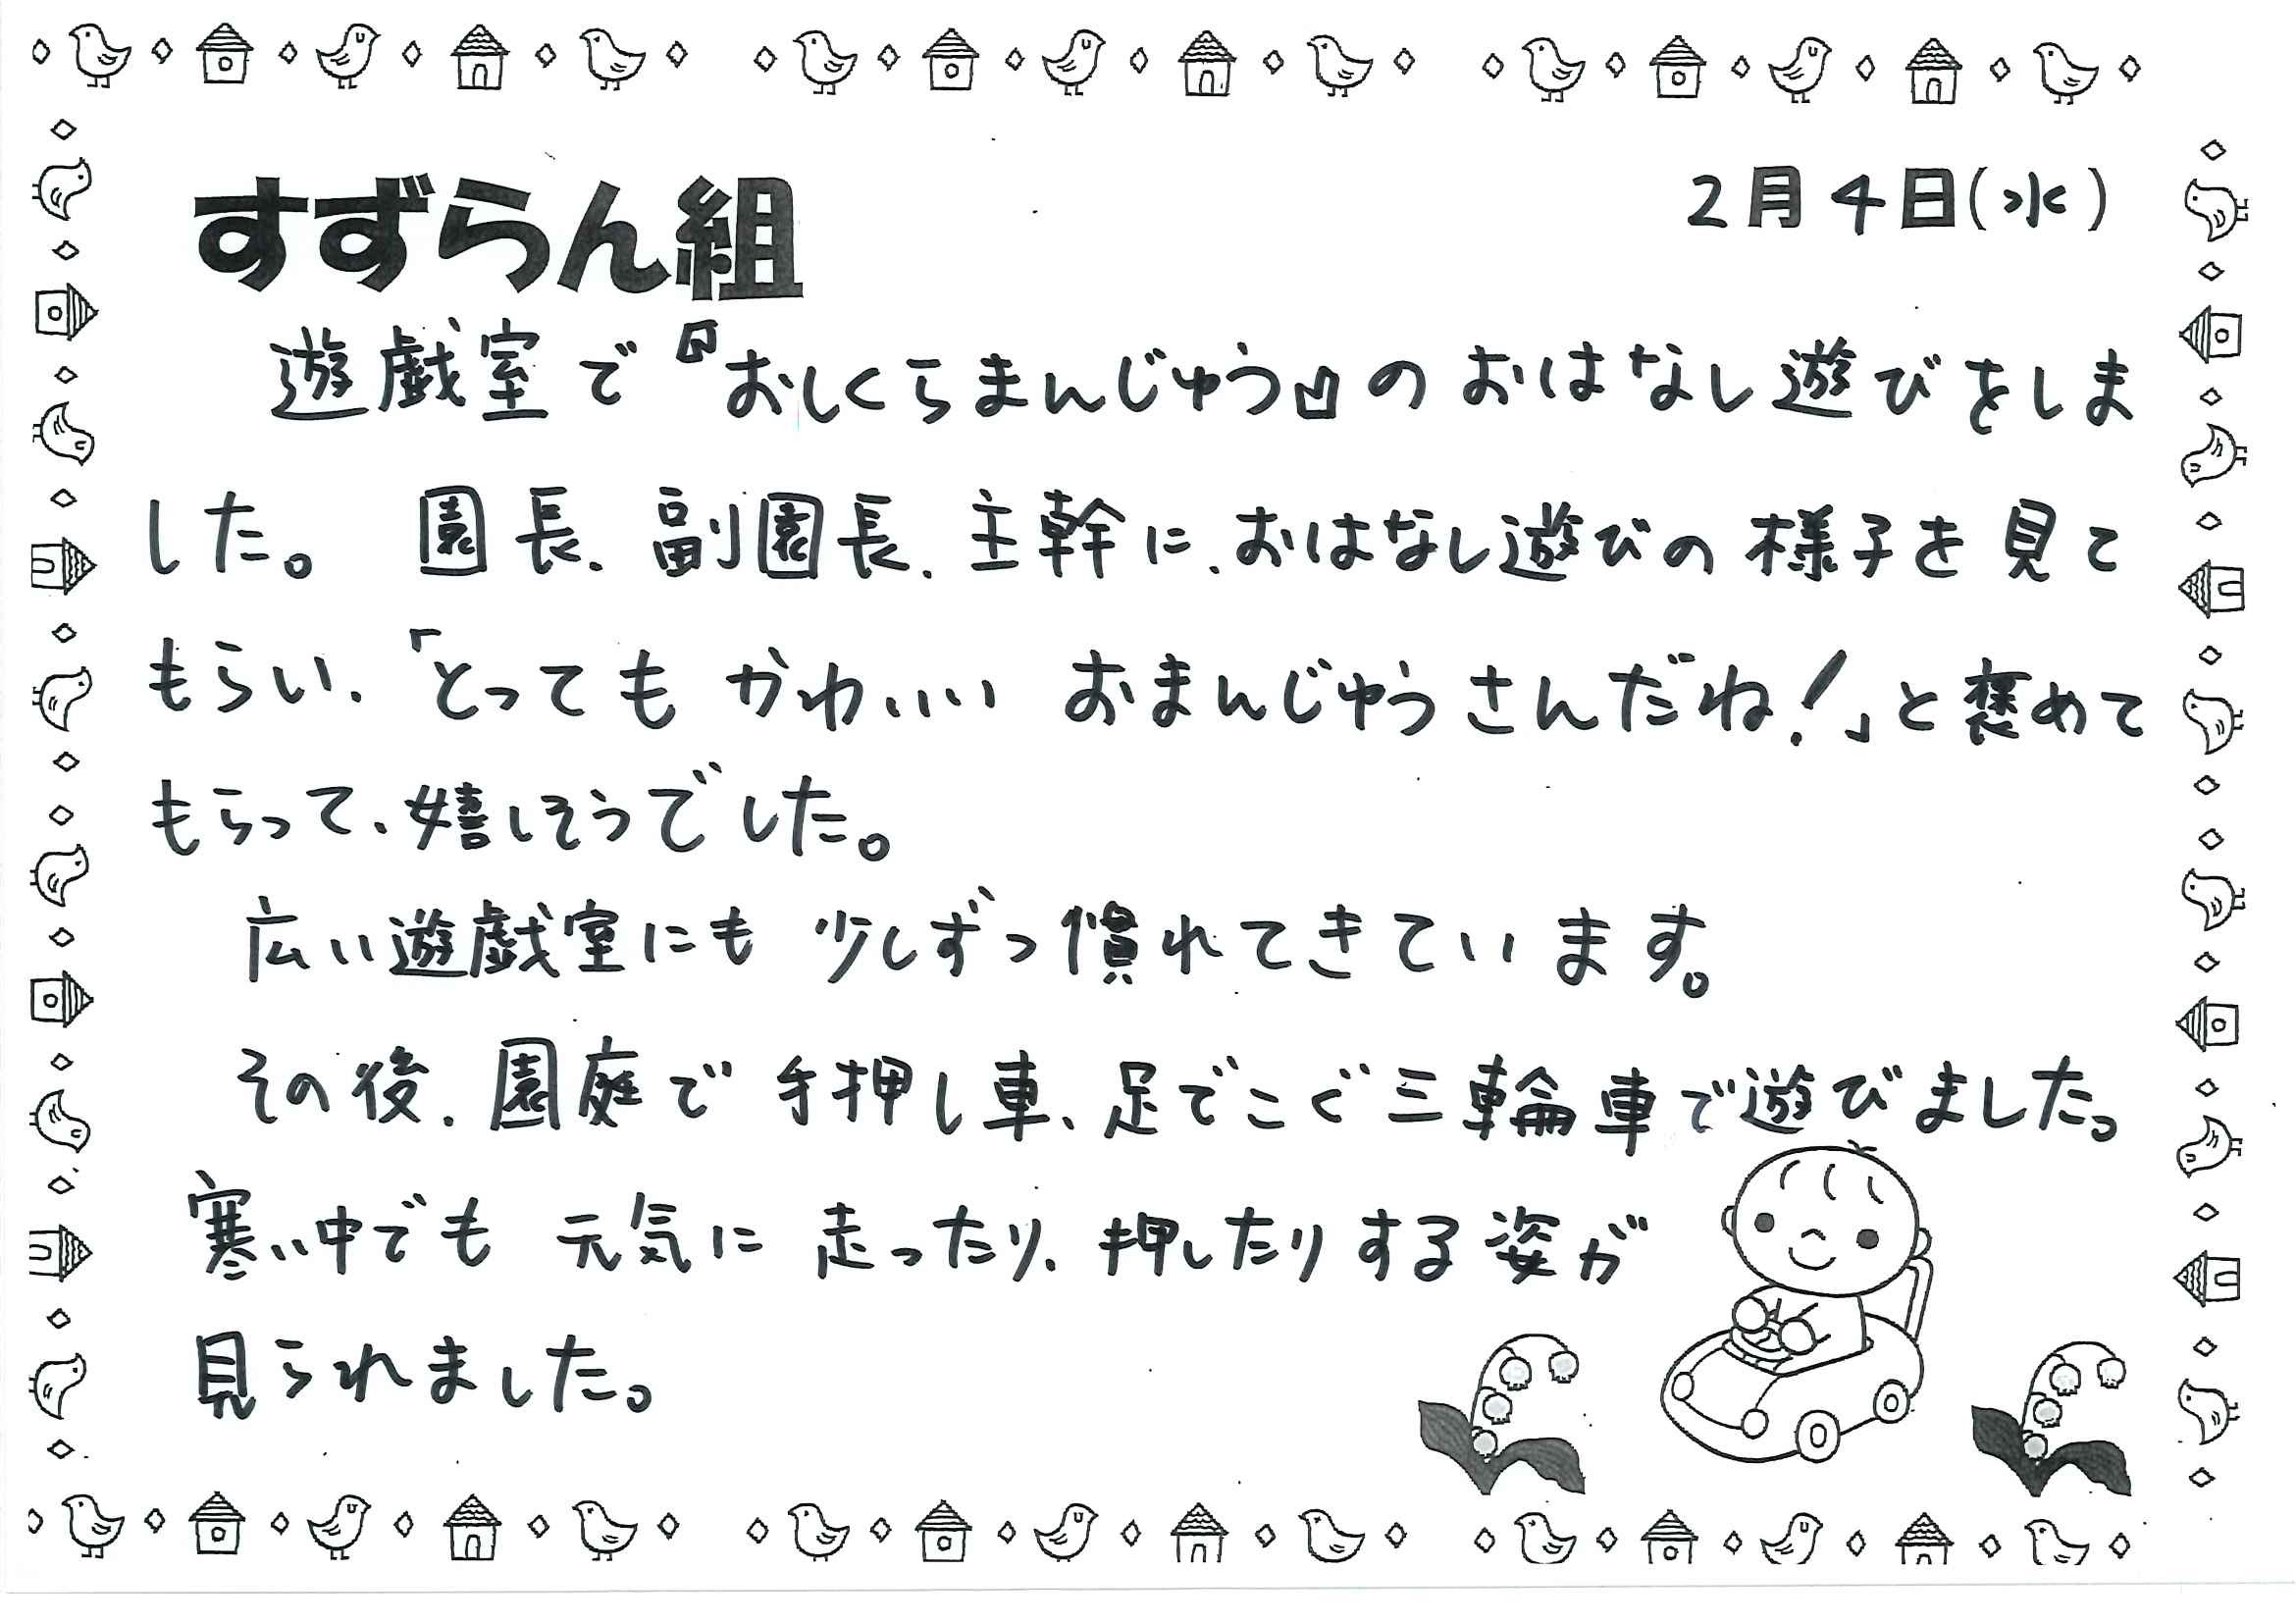 すずらん組
2月4日(水)
遊戯室で『おしくらまんじゅう』のおはなし遊びをしま
した。 園長、副園長、主幹に、おはなし遊びの様子を見て
もらい、「とってもかわいいおまんじゅうさんだね!」と褒めて
もらって、嬉しそうでした。
広い遊戯室にも少しずつ慣れてきています。
その後、園庭で手押し車、足でこぐ三輪車で遊びました。
寒い中でも元気に走ったり、押したりする姿が
見られました。